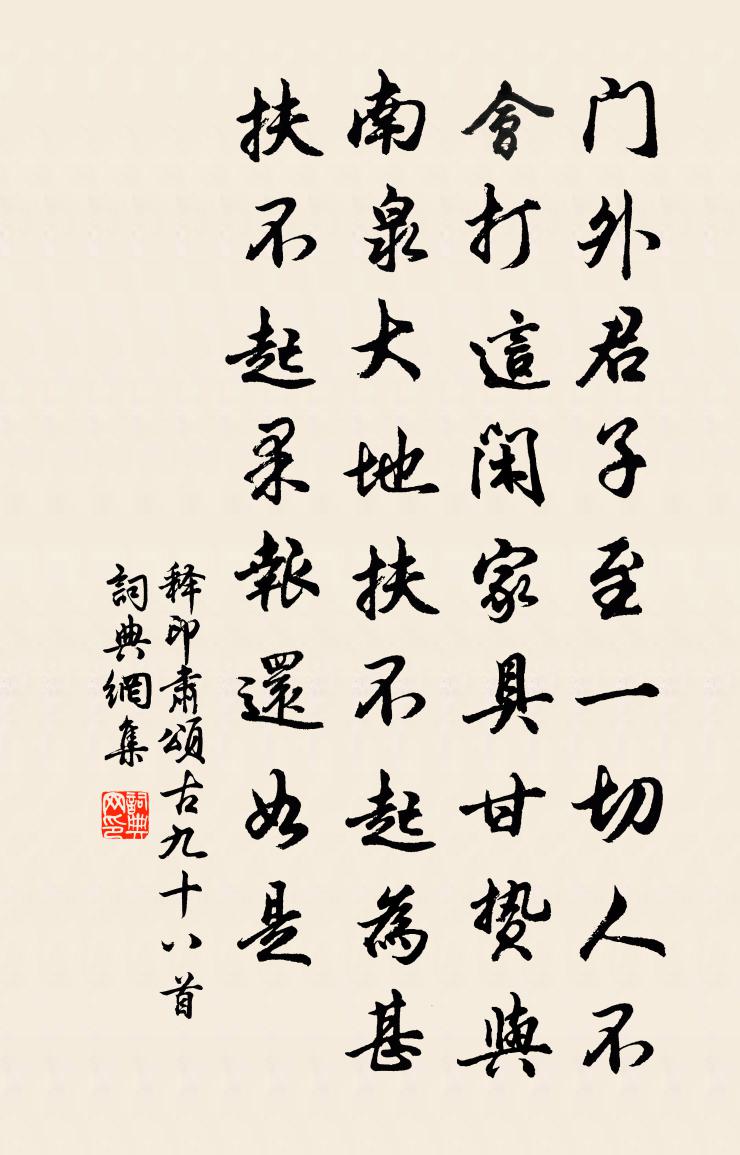 门外君子至一切人不
會打這閑家具甘贽與
南泉大地扶不起為甚
扶不起果報還如是
释印肃頌古九十八首
詞典網集
詞典网印